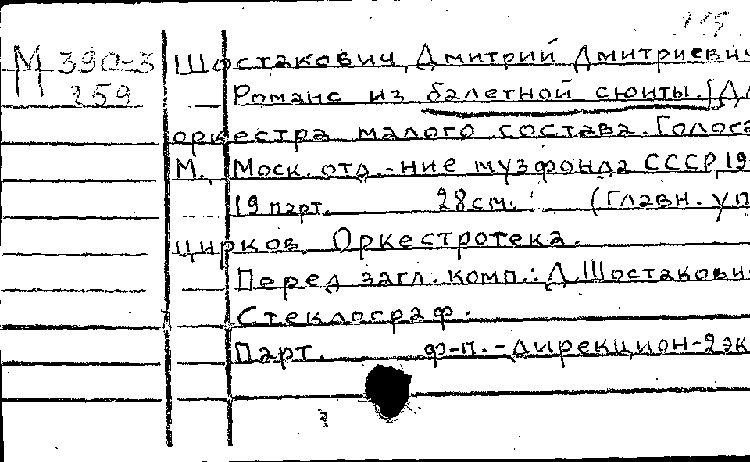 М 390-3 Шостакович, Дмитрий Дмитриевич
259 Романс из балетной сюиты. [Дл
оркестра малого состава. Голоса
М., Моск. отд.-ние музфонда СССР, 19
19 парт. 28 см. (Главн. уп
цирков. Оркестротека.
Перед загл. комп.: Д. Шостакович
Стеклограф.
Парт. ф-п.-дирекцион-2 эк